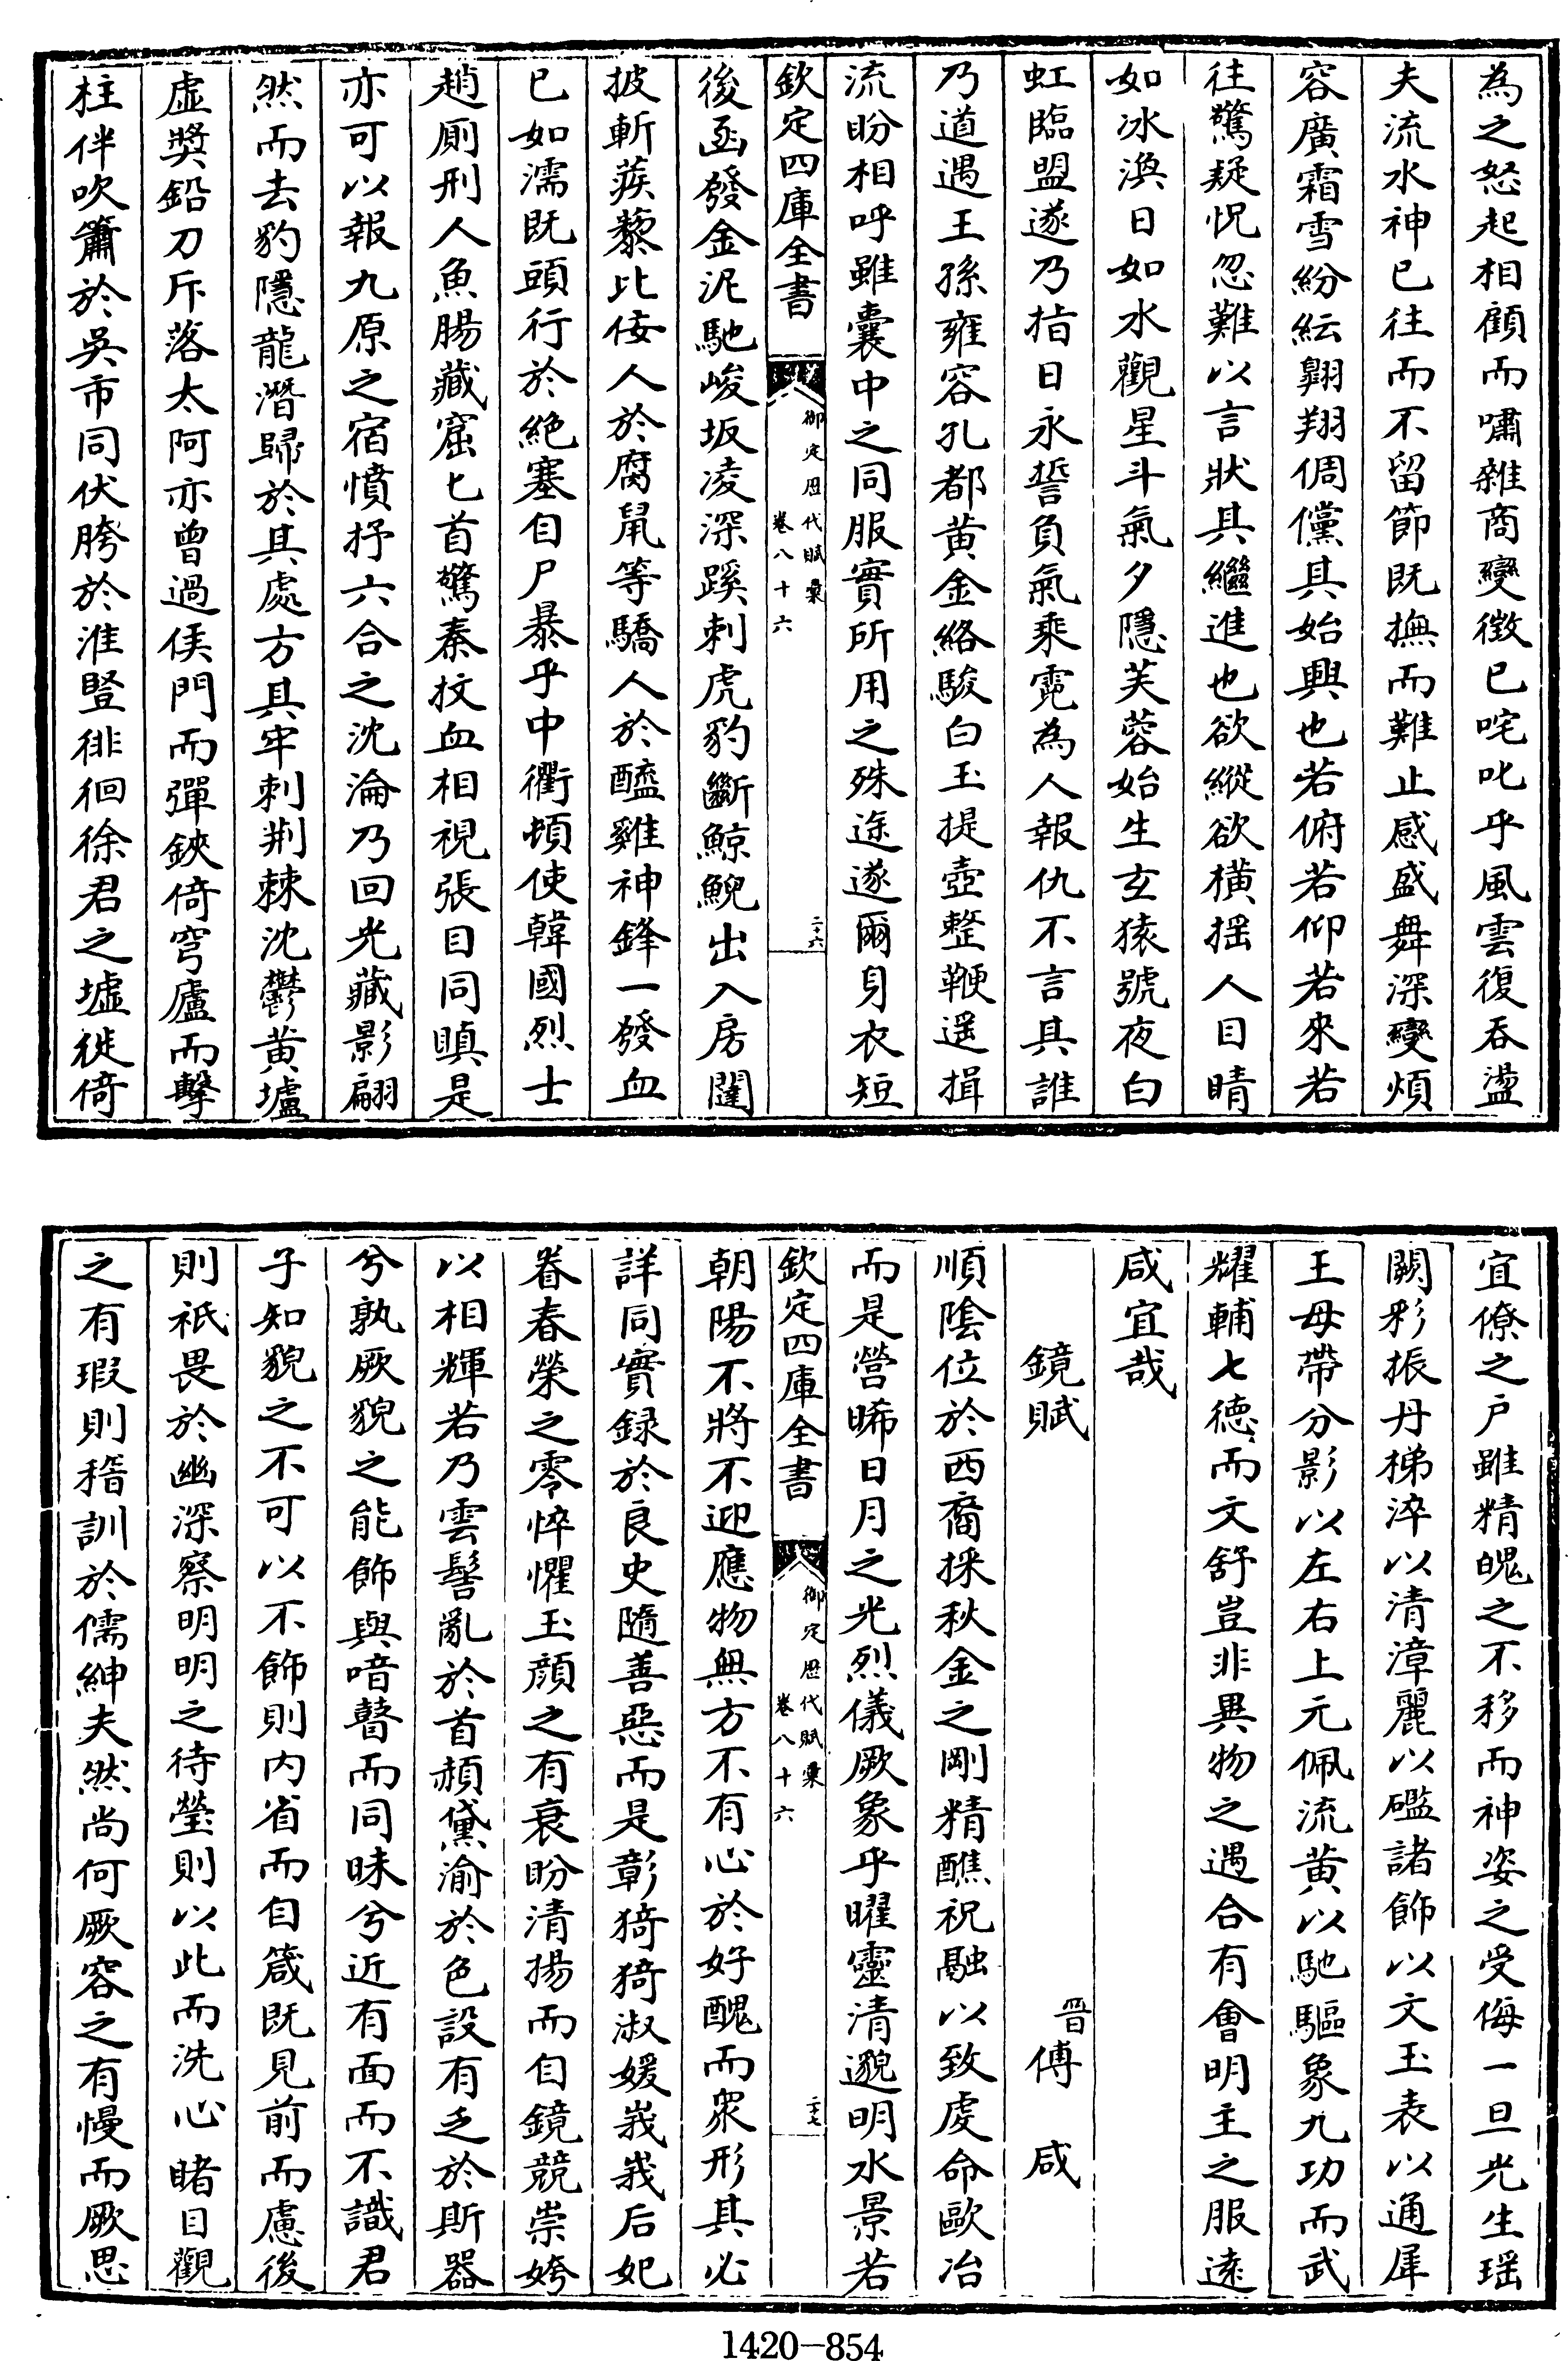 為之怒起相顧而嘯雜商變徴已咤叱乎風雲復吞盪
夫流水神已往而不留節既撫而難止感盛舞深變煩
容廣霜雪紛紜翺翔倜儻其始興也若俯若仰若來若
往驚疑怳忽難以言狀其繼進也欲縱欲橫揺人目睛
如冰渙日如水觀星斗氣夕隱芙蓉始生玄猿號夜白
虹臨盟遂乃指日永誓負氣乘霓為人報仇不言其誰
乃道遇王孫雍容孔都黄金絡駿白玉提壺整鞭遥揖
流盼相呼雖囊中之同服實所用之殊途遂爾身衣短
欽定四庫全書
御定歴代賦彙
卷八十六
二十六
後函發金泥馳峻坂凌深蹊刺虎豹斷鯨鯢出入房闥
披斬蒺藜比佞人於腐䑕等驕人於醯雞神鋒一發血
已如濡既頭行於絶塞自尸暴乎中衢頓使韓國烈士
趙厠刑人魚腸藏窟匕首驚秦抆血相視張目同瞋是
亦可以報九原之宿憤抒六合之沈淪乃回光藏影翩
然而去豹隱龍潛歸於其處方具牢刺荆棘沈鬱黄壚
虚奬鉛刀斥落太阿亦曾過侯門而彈鋏倚穹廬而擊
柱伴吹簫於吳市同伏胯於淮豎徘徊徐君之墟徙倚
宜僚之戸雖精魄之不移而神姿之受侮一旦光生瑶
闕彩振丹梯淬以清漳麗以礛諸飾以文玉表以通犀
王母帶分影以左右上元佩流黄以馳驅象九功而武
耀輔七德而文舒豈非異物之遇合有會明主之服逺
咸宜哉
鏡賦
晋傅咸
順陰位於西裔採秋金之剛精醮祝融以致虔命歐冶
而是營晞日月之光烈儀厥象乎曜靈清邈明水景若
欽定四庫全書
御定歴代賦彙
卷八十六
二十七
朝陽不將不迎應物無方不有心於好醜而衆形其必
詳同實録於良史隨善惡而是彰猗猗淑媛峩峩后妃
眷春榮之零悴懼玉顔之有衰盼清揚而自鏡競崇姱
以相輝若乃雲髻亂於首頳黛渝於色設有乏於斯器
兮孰厥貌之能飾與喑瞽而同昧兮近有面而不識君
子知貌之不可以不飾則内省而自箴既見前而慮後
則祇畏於幽深察明明之待瑩則以此而洗心睹目觀
之有瑕則稽訓於儒紳夫然尚何厥容之有慢而厥思
1420-854